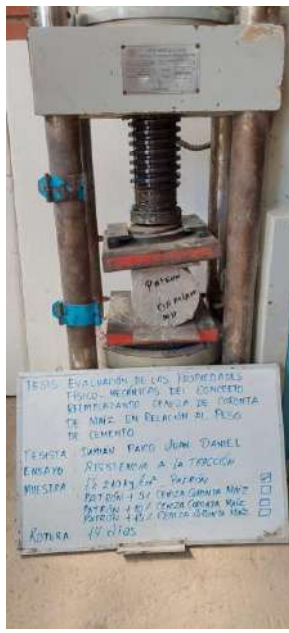 PATRON
TESIS: EVALUACIÓN DE LAS PROPIEDADES
FÍSICO-MECÁNICAS DEL CONCRETO
REEMPLAZANDO CENIZA DE CORONTA
DE MAÍZ EN RELACIÓN AL PESO
DE CEMENTO
TESISTA: DAMIAN PARO JUAN DANIEL
ENSAYO: RESISTENCIA A LA TRACCIÓN
MUESTRA: f'c 210 kg/cm² PATRÓN
PATRÓN + 5% CENIZA CORONTA MAÍZ
PATRÓN + 10% CENIZA CORONTA MAÍZ
PATRÓN + 15% CENIZA CORONTA MAÍZ
ROTURA: 14 días